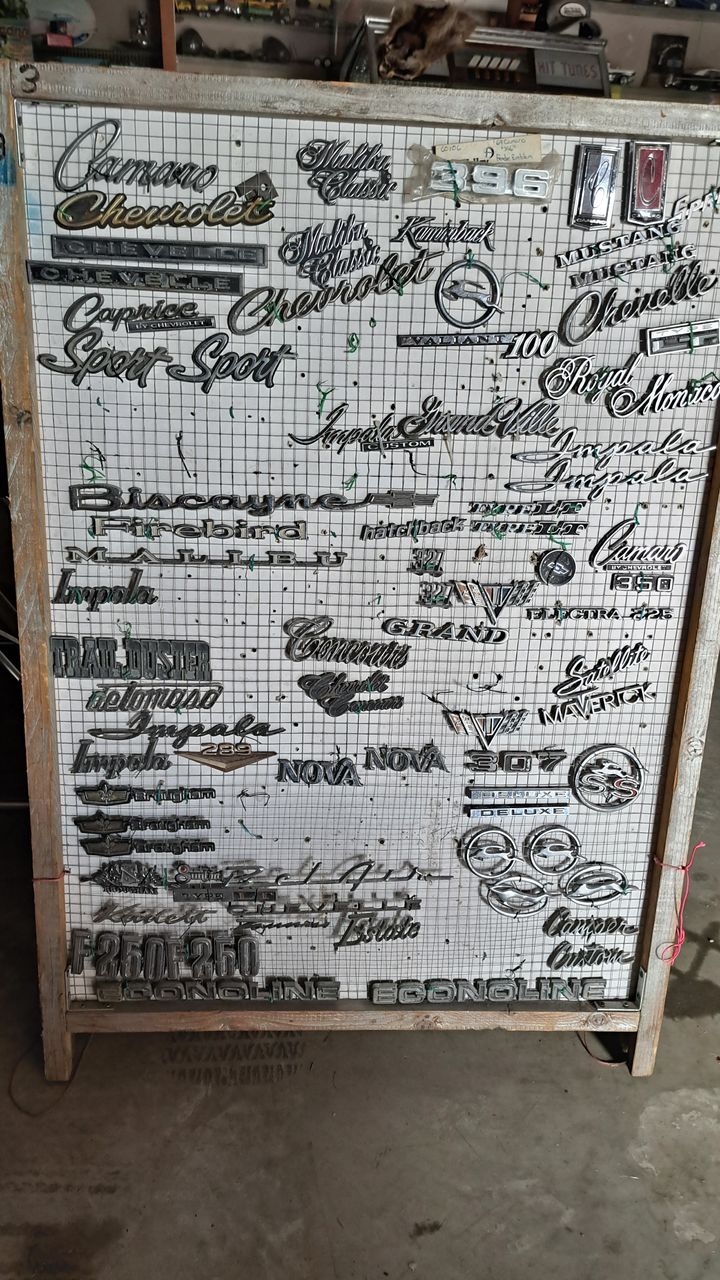 3
HIT TUNES
Camaro
Chevrolet
Malibu
Classic
396
CHEVELLE
CHEVELLE
Malibu
Classic
Kammback
MUSTANG
MUSTANG
Caprice
BY CHEVROLET
Chevrolet
Chevelle
VALIANT 100
Sport Sport
Royal
Monaco
Impala
CUSTOM
Grand Ville
Impala
Impala
Biscayne
TYPE LT
Firebird
hatchback
TYPE LT
MALIBU
327
Camaro
BY CHEVROLET
350
Impala
327
ELECTRA 225
GRAND
Concours
TRAIL DUSTER
Satellite
deTomaso
MAVERICK
Impala
Impala
289
NOVA
NOVA
307
SS
Brougham
DELUXE
DELUXE
Brougham
Brougham
Bel Air
TYPE LT
Kadett
Estate
Camper
F250 F250
Custom
ECONOLINE
ECONOLINE